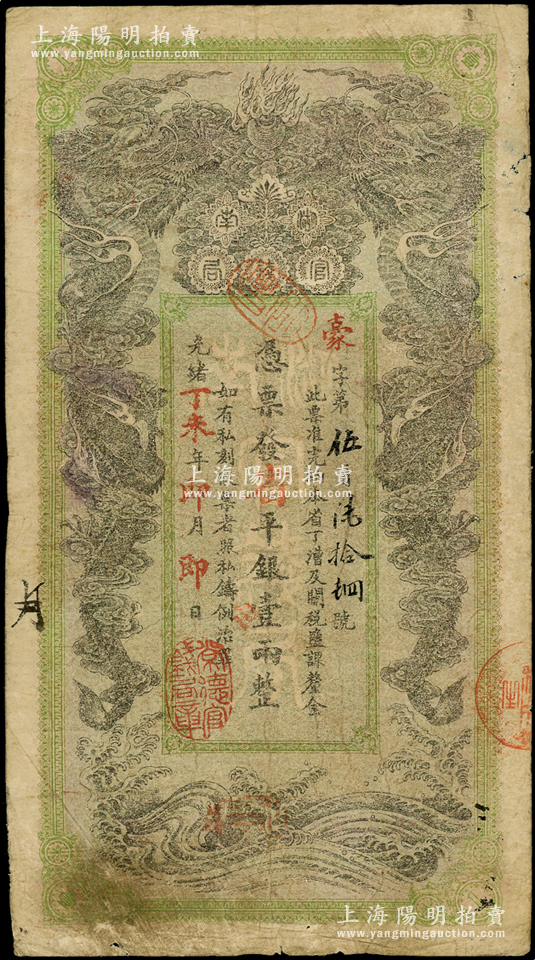 上海陽明拍賣
www.yangmingauction.com
湖南
官局
豪字第伍 柒拾肆號
此票准完 省丁漕及關稅鹽課釐金
憑票發 平銀壹兩整
如有私刻 者照私鑄例治罪
光緒丁未年卯月即日
上海陽明拍賣
www.yangmingauction.com
常德官錢局章
上海陽明拍賣
www.yangmingauction.com